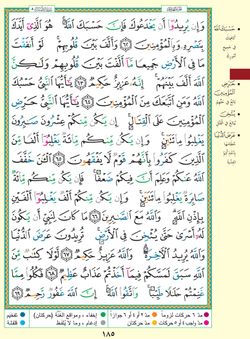 وَإِن يُرِيدُوٓا۟ أَن يَخْدَعُوكَ فَإِنَّ حَسْبَكَ ٱللَّهُ ۚ هُوَ ٱلَّذِىٓ أَيَّدَكَ
بِنَصْرِهِۦ وَبِٱلْمُؤْمِنِينَ ٦٢ وَأَلَّفَ بَيْنَ قُلُوبِهِمْ ۚ لَوْ أَنفَقْتَ
مَا فِى ٱلْأَرْضِ جَمِيعًا مَّآ أَلَّفْتَ بَيْنَ قُلُوبِهِمْ وَلَٰكِنَّ
ٱللَّهَ أَلَّفَ بَيْنَهُمْ ۚ إِنَّهُۥ عَزِيزٌ حَكِيمٌ ٦٣ يَٰٓأَيُّهَا ٱلنَّبِىُّ حَسْبُكَ
ٱللَّهُ وَمَنِ ٱتَّبَعَكَ مِنَ ٱلْمُؤْمِنِينَ ٦٤ يَٰٓأَيُّهَا ٱلنَّبِىُّ
حَرِّضِ ٱلْمُؤْمِنِينَ عَلَى ٱلْقِتَالِ ۚ إِن يَكُن مِّنكُمْ عِشْرُونَ
صَٰبِرُونَ يَغْلِبُوا۟ مِا۟ئَتَيْنِ ۚ وَإِن يَكُن مِّنكُم مِّا۟ئَةٌ يَغْلِبُوٓا۟ أَلْفًا مِّنَ
ٱلَّذِينَ كَفَرُوا۟ بِأَنَّهُمْ قَوْمٌ لَّا يَفْقَهُونَ ٦٥ ٱلْـَٰٔنَ خَفَّفَ
ٱللَّهُ عَنكُمْ وَعَلِمَ أَنَّ فِيكُمْ ضَعْفًا ۚ فَإِن يَكُن مِّنكُم مِّا۟ئَةٌ
صَابِرَةٌ يَغْلِبُوا۟ مِا۟ئَتَيْنِ ۚ وَإِن يَكُن مِّنكُمْ أَلْفٌ يَغْلِبُوٓا۟ أَلْفَيْنِ
بِإِذْنِ ٱللَّهِ ۗ وَٱللَّهُ مَعَ ٱلصَّٰبِرِينَ ٦٦ مَا كَانَ لِنَبِىٍّ أَن يَكُونَ
لَهُۥٓ أَسْرَىٰ حَتَّىٰ يُثْخِنَ فِى ٱلْأَرْضِ ۚ تُرِيدُونَ عَرَضَ ٱلدُّنْيَا
وَٱللَّهُ يُرِيدُ ٱلْـَٔاخِرَةَ ۗ وَٱللَّهُ عَزِيزٌ حَكِيمٌ ٦٧ لَّوْلَا كِتَٰبٌ مِّنَ
ٱللَّهِ سَبَقَ لَمَسَّكُمْ فِيمَآ أَخَذْتُمْ عَذَابٌ عَظِيمٌ ٦٨ فَكُلُوا۟ مِمَّا
غَنِمْتُمْ حَلَٰلًا طَيِّبًا ۚ وَٱتَّقُوا۟ ٱللَّهَ ۚ إِنَّ ٱللَّهَ غَفُورٌ رَّحِيمٌ ٦٩
حَسْبَكَ ٱللَّهُ
حَرِّضِ
ٱلْمُؤْمِنِينَ
يُثْخِنَ
عَرَضَ ٱلدُّنْيَا
مدّ ٦ حركات لزوماً
مدّ ٢ أو ٤ أو ٦ جوازاً
مدّ واجب ٤ أو ٥ حركات
مدّ حركتان
إخفاء، ومواقع الغنّة (حركتان)
إدغام، وما لا يُلفظ
تفخيم
قلقلة
١٨٥